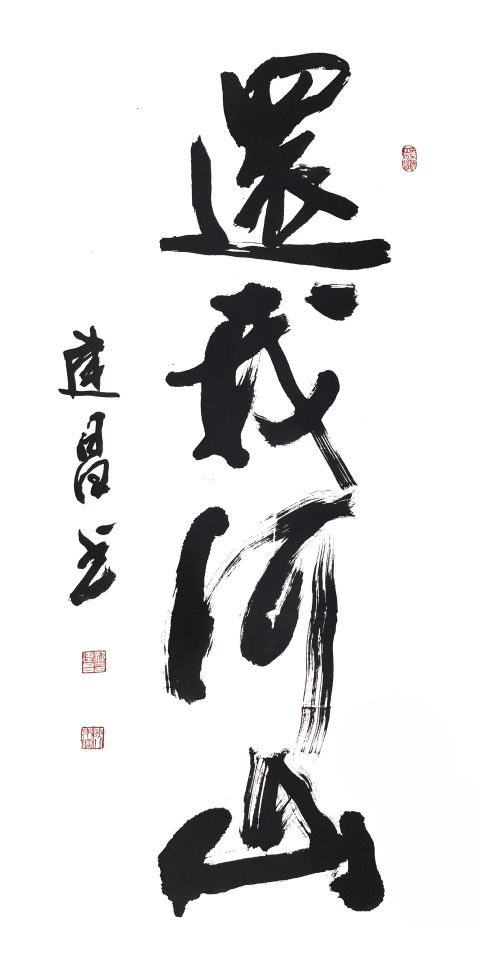 還我河山
建昌書